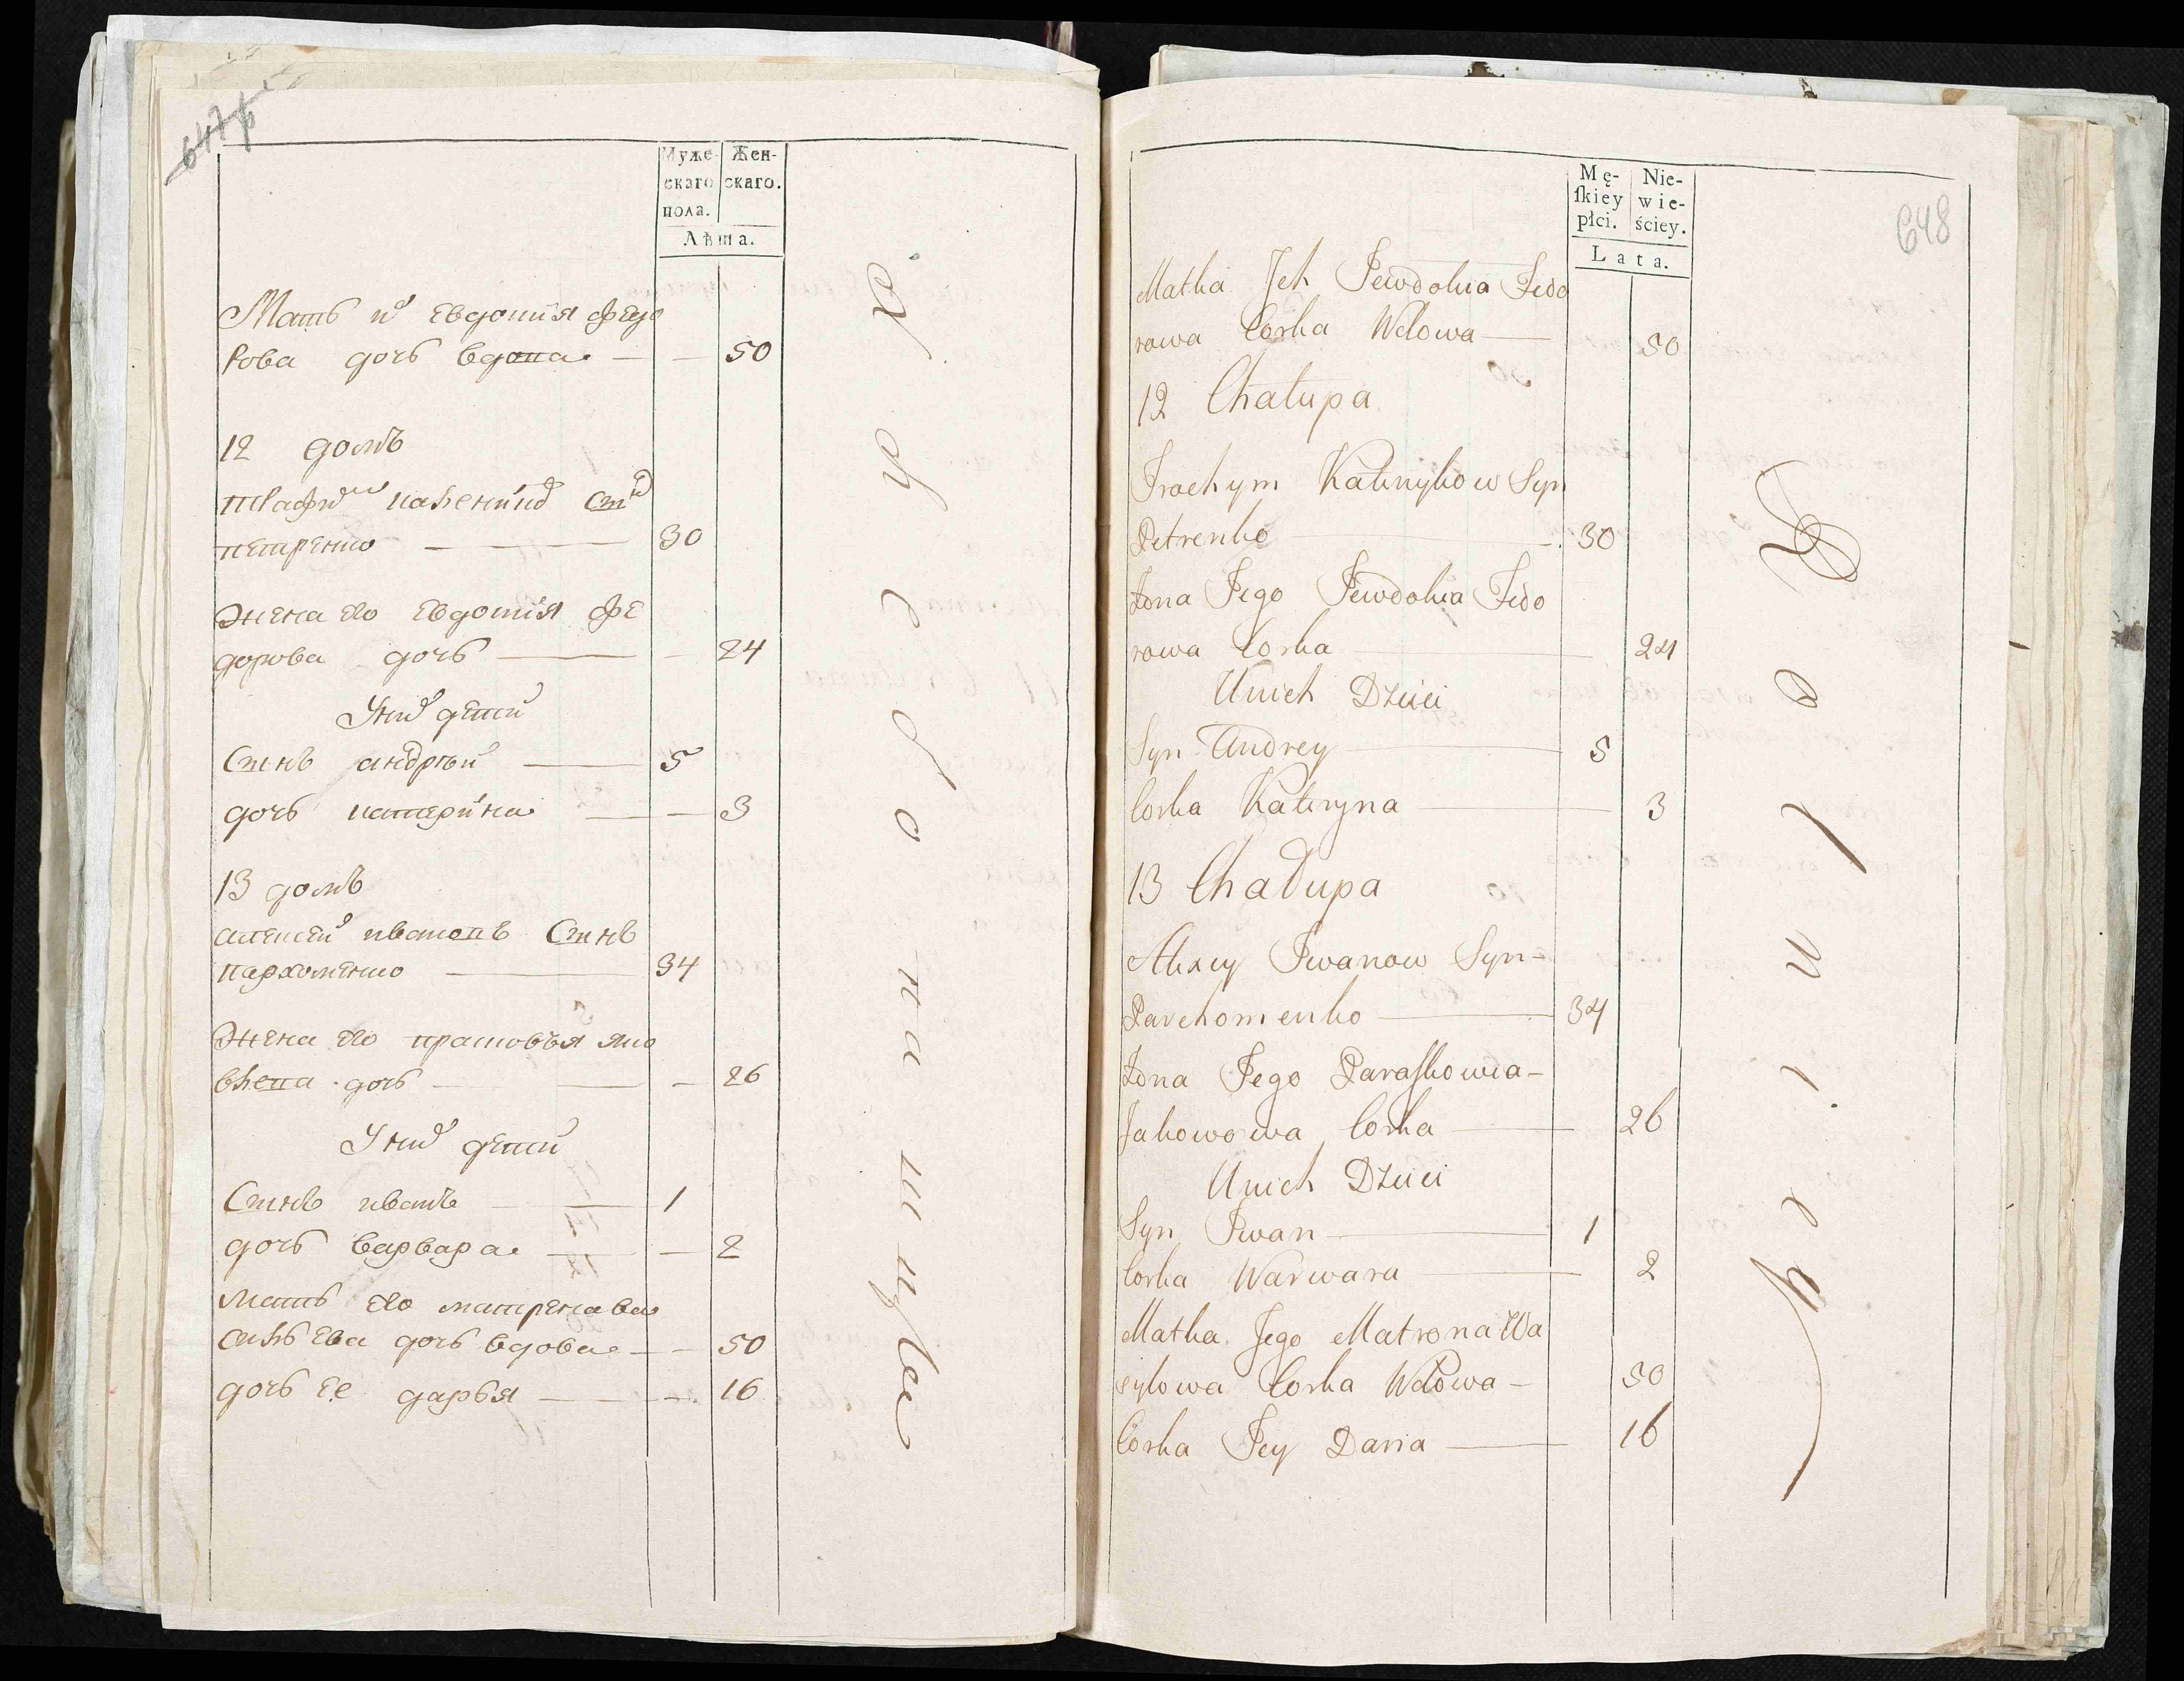 Муже-
скаго
пола.
Жен-
скаго.
Лѣта.
Мать их Евдокия Федо
рова дочь вдова — — 50
12 домъ
Трафим Каленик сын
петренко — 30
жена его Евдокия Фе
дорова дочь — — 24
У них дети
Сынъ андрей — 5
дочь катерина — — 3
13 домъ
алексей ивановъ Сынъ
пархоменко — 34
жена его прасковья яко
влева дочь — — 26
У них дети
Сынъ иванъ — 1
дочь варвара — — 2
мать его матрена ва
сильева дочь вдова — — 50
дочь ее дарья — — 16
648
Mę-
ſkiey
płci.
Nie-
wie-
ściey.
Lata.
Matka Jch Jewdokia Fedo
rowa Corka Wdowa — 50
12 Chałupa
Trochym Kalinykow Syn
Petrenko — 30
Żona Jego Jewdokia Fedo
rowa Corka — 24
Unich Dzieci
Syn Andrey — 5
Corka Kateryna — 3
13 Chałupa
Alexey Jwanow Syn —
Parchomenko — 34
Żona Jego Paraſkowia —
Jakowowa Corka — 26
Unich Dzieci
Syn Jwan — 1
Corka Warwara — 2
Matka Jego Matrona Wa
sylowa Corka Wdowa — 50
Corka Jey Daria — 16